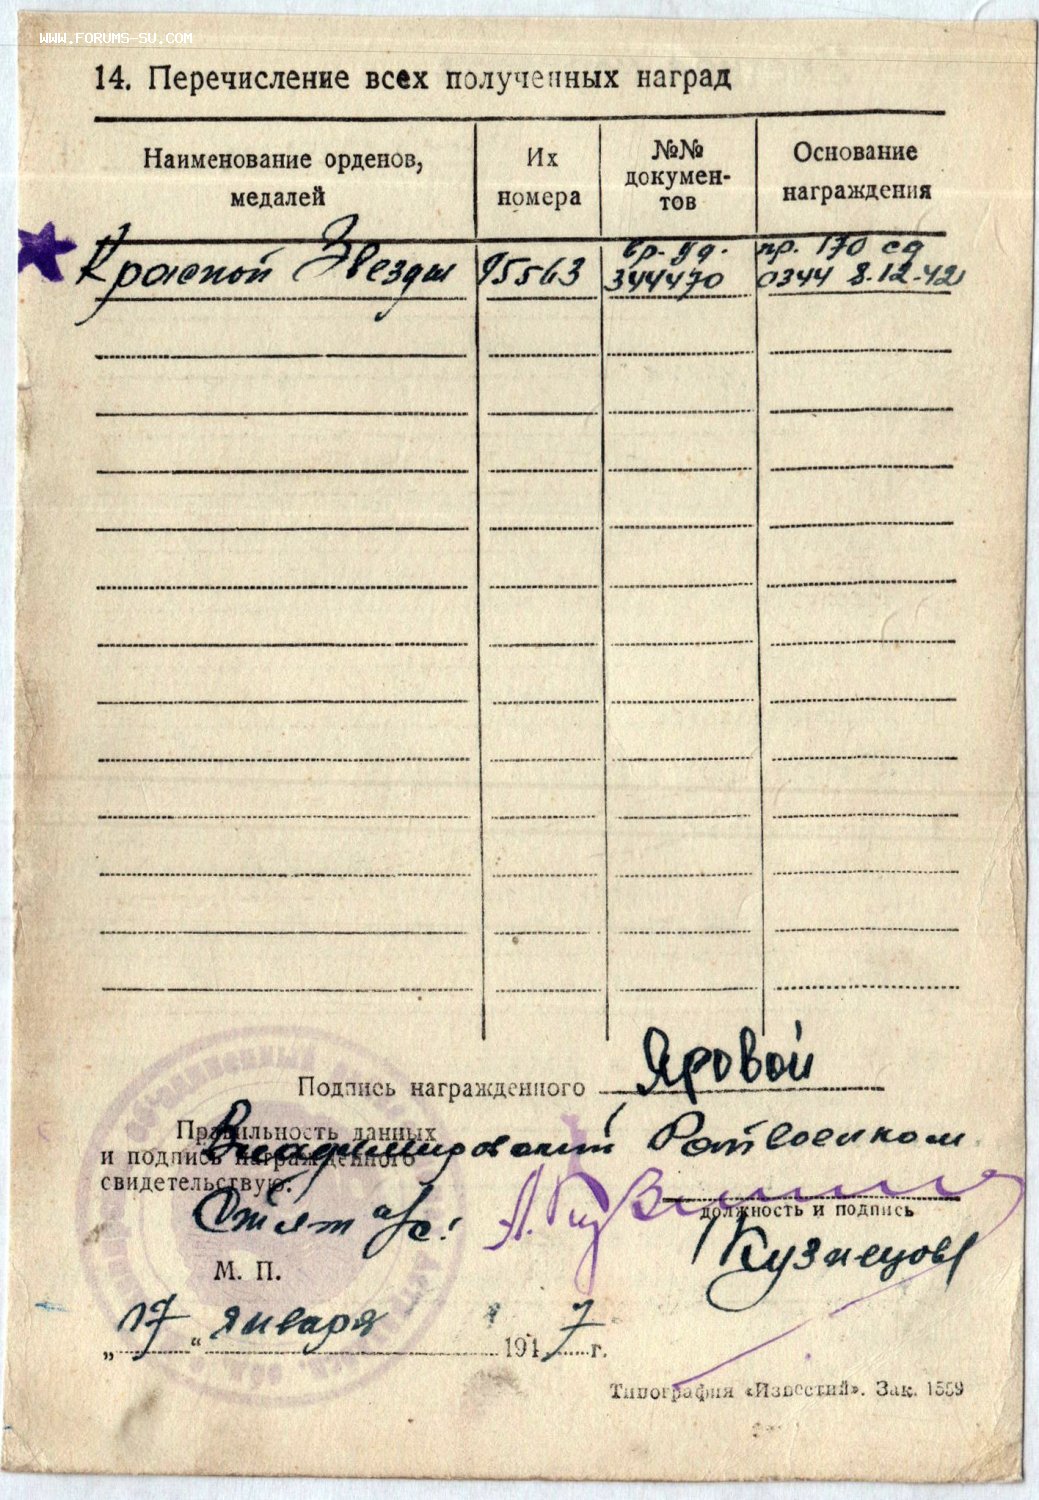 WWW.FORUMS-SU.COM
14. Перечисление всех полученных наград
Наименование орденов, медалей
Их номера
№№ докумен-тов
Основание награждения
Красной Звезды 95563 вр. уд. 344470 пр. 170 сд 0344 8.12.42
Подпись награжденного Яровой
Правильность данных
и подпись награжденного
свидетельствую:
Владимировский Райвоенком
должность и подпись
Кузнецов
М. П.
„17“ января 1947 г.
Типография «Известий». Зак. 1559